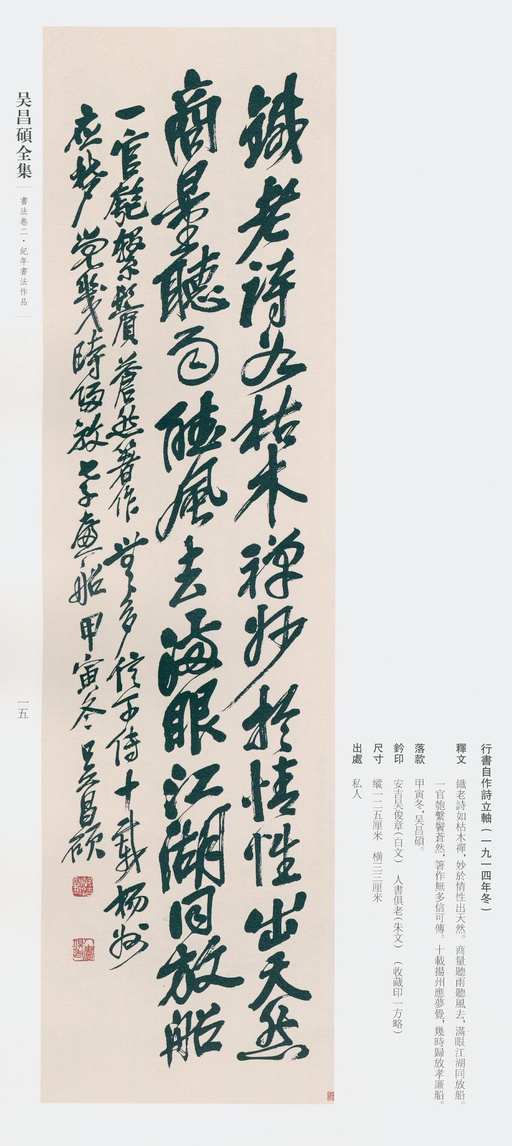 鐵老詩如枯木禅妙於情性出天然
商量聽雨聽風去滿眼江湖同放船
一官匏繫鬢蒼然著作無多信可傳十載揚州
應夢覺幾時歸放孝廉船甲寅冬吴昌碩
行書自作詩立軸（一九一四年冬）
釋文 鐵老詩如枯木禪，妙於情性出天然。商量聽雨聽風去，滿眼江湖同放船。
一官匏繫鬢蒼然，箸作無多信可傳。十載揚州應夢覺，幾時歸放孝廉船。
落款 甲寅冬，吴昌碩。
鈐印 安吉吴俊章（白文） 人書俱老（朱文） （收藏印一方略）
尺寸 縱一二五厘米 橫三三厘米
出處 私人
吴昌碩全集
書法卷二·紀年書法作品
一五